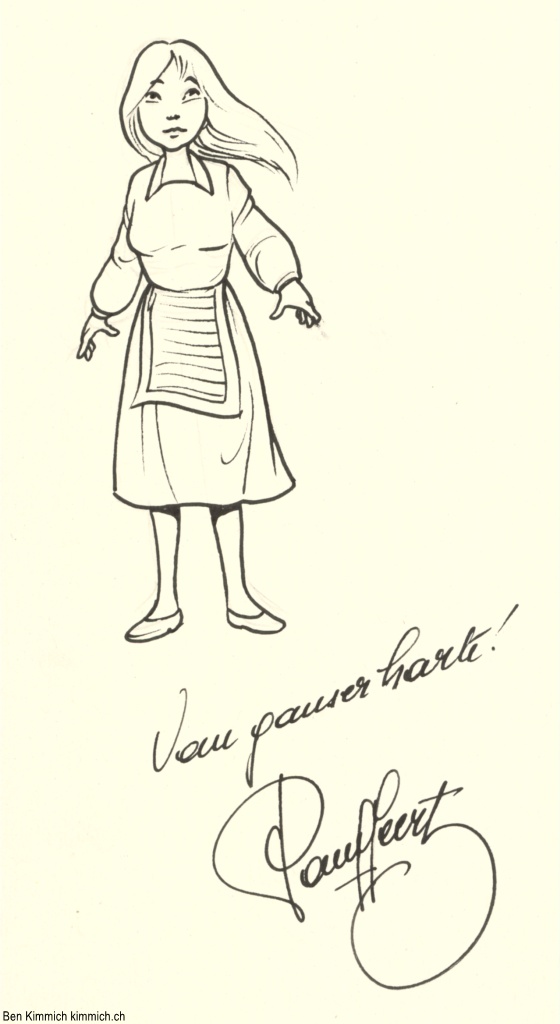 Van ganser harte!
Paul Geert
Ben Kimmich kimmich.ch